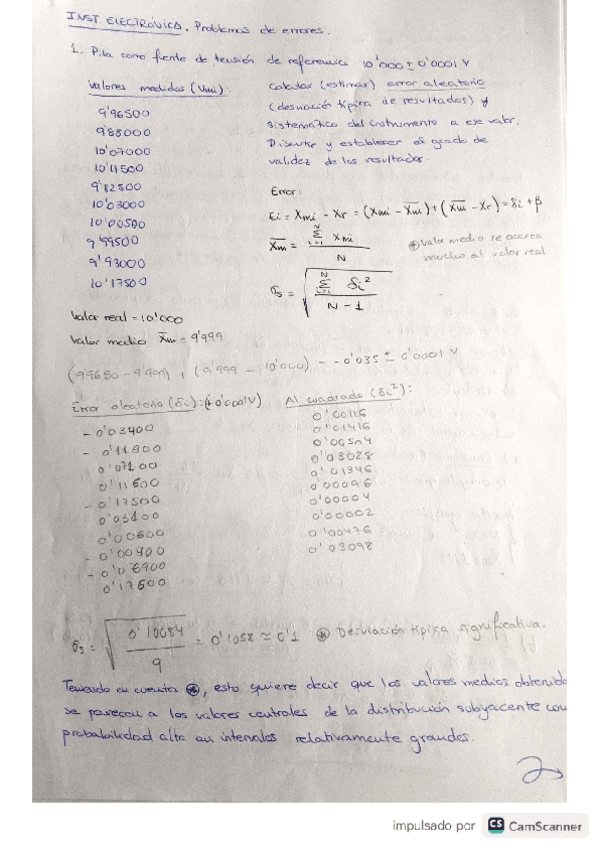 INST. ELECTRÓNICA. Problemas de errores.
1. Pila como fuente de tensión de referencia 10'000 ± 0'0001 V
Valores medidos (Vmi):
9'96500
9'88000
10'07000
10'11500
9'82500
10'03000
10'00500
9'99500
9'93000
10'17500
Valor real = 10'000
Valor medio x̄m = 9'999
Calcular (estimar) error aleatorio
(desviación típica de resultados) y
sistemático del instrumento a ese valor.
Discutir y establecer el grado de
validez de los resultados.
Error:
Ei = Xmi - Xr = (Xmi - X̄m) + (X̄m - Xr) = δi + β
X̄m = Σ(i=1..N) Xmi / N
⊛ Valor medio se acerca
mucho al valor real
σs = √(Σ(i=1..N) δi² / (N - 1))
(9'9650 - 9'999) + (9'999 - 10'000) = - 0'035 ± 0'0001 V
Error aleatorio (δi): (± 0'0001V)
- 0'03400
- 0'11900
0'07100
0'11600
- 0'17500
0'03100
0'00600
- 0'00400
- 0'06900
0'17600
Al cuadrado (δi²):
0'00116
0'01416
0'03028
0'01346
0'00096
0'00004
0'00002
0'00476
0'03098
σs = √(0'10084 / 9) = 0'1058 ≃ 0'1 ⊛ Desviación típica significativa.
Teniendo en cuenta ⊛, esto quiere decir que los valores medios obtenido
se parecen a los valores centrales de la distribución subyacente con
probabilidad alta en intervalos relativamente grandes.
impulsado por CS CamScanner